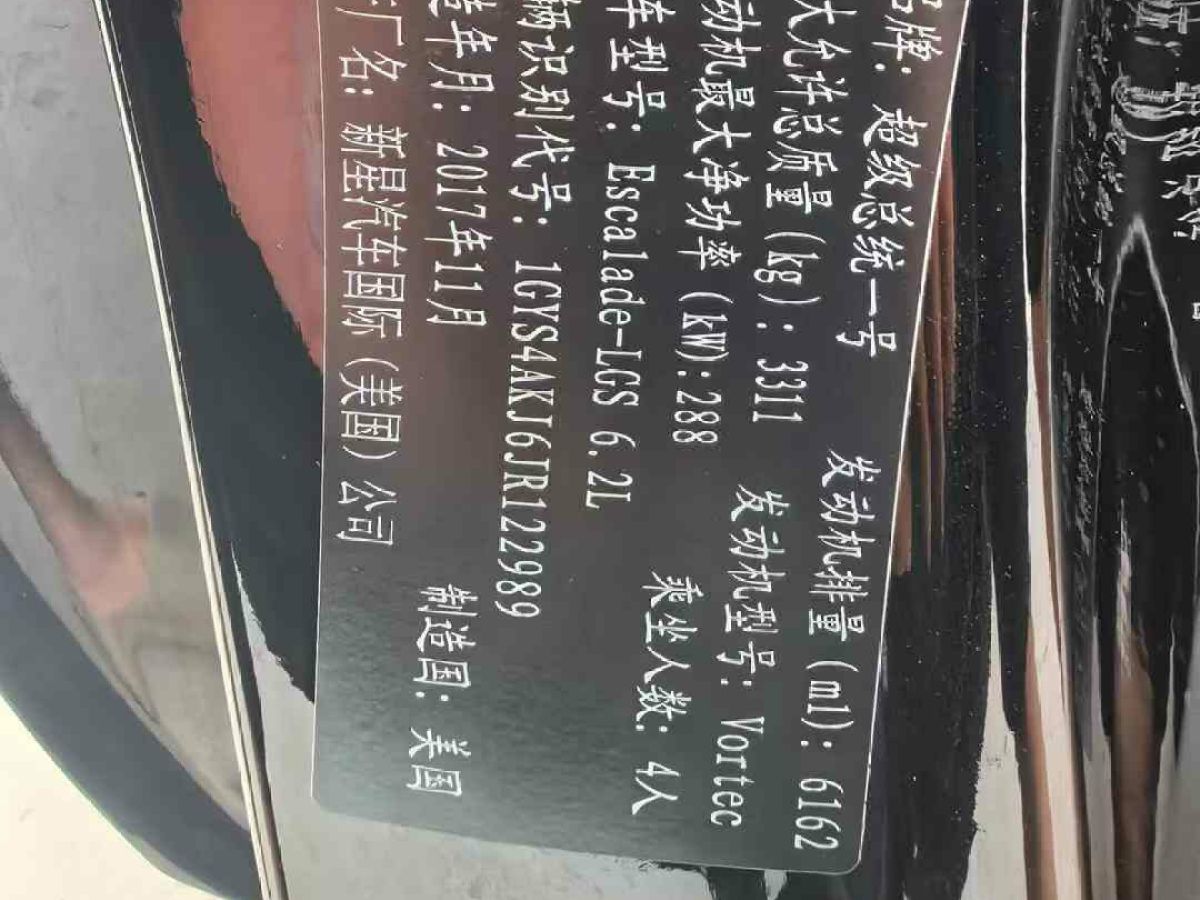 品牌: 超级总统一号
大允许总质量(kg): 3311 发动机排量(ml): 6162
动机最大净功率(kW):288 发动机型号: Vortec
车型号: Escalade-LGS 6.2L 乘坐人数: 4人
辆识别代号: 1GYS4AKJ6JR122989
造年月: 2017年11月 制造国: 美国
厂名: 新星汽车国际(美国)公司